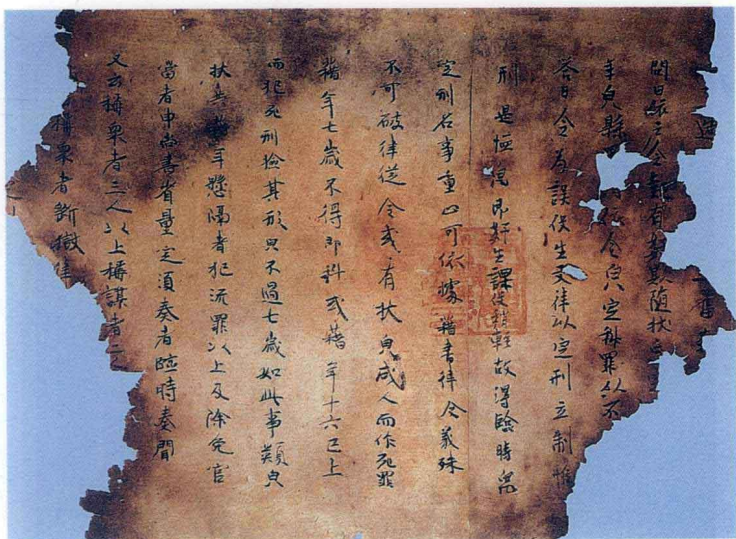 問曰依戶令疑有姧欺隨狀皃
年皃縣 依令皃定科罪以不
答曰令為課役生文律以定刑立制惟
刑是恤皃即姧生課役稍輕故得臨時皃
定刑名事重止可依據籍書律令義殊
不可破律從令或有狀皃成人而作死罪
籍年七歲不得即科或籍年十六已上
而犯死刑撿其形皃不過七歲如此事類皃
狀共籍年懸隔者犯流罪以上及除免官
當者申尚書省量定須奏者臨時奏聞
又云稱衆者三人以上稱謀者二人
稱衆者斷獄律